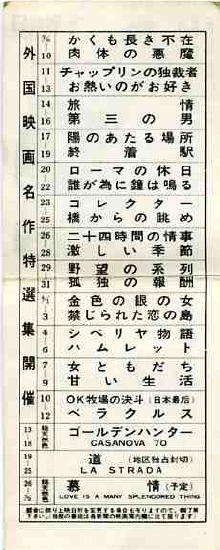 外国映画名作特選集開催
かくも長き不在
10 肉体の悪魔
11 チャップリンの独裁者
13 お熱いのがお好き
14 旅情
16 第三の男
17 陽のあたる場所
19 終着駅
20 ローマの休日
22 誰が為に鐘は鳴る
23 コレクター
25 橋からの眺め
26 二十四時間の情事
28 激しい季節
29 野望の系列
31 孤独の報酬
金色の眼の女
3 禁じられた恋の島
4 シベリヤ物語
6 ハムレット
7 女ともだち
9 甘い生活
10 OK牧場の決斗(日本最后)
12 ヘラクルス
13 ゴールデンハンター
18 CASANOVA 70
19 道(地区独占封切)
25 LA STRADA
26 慕情(予定)
LOVE IS A MANY SPLENDORED THING